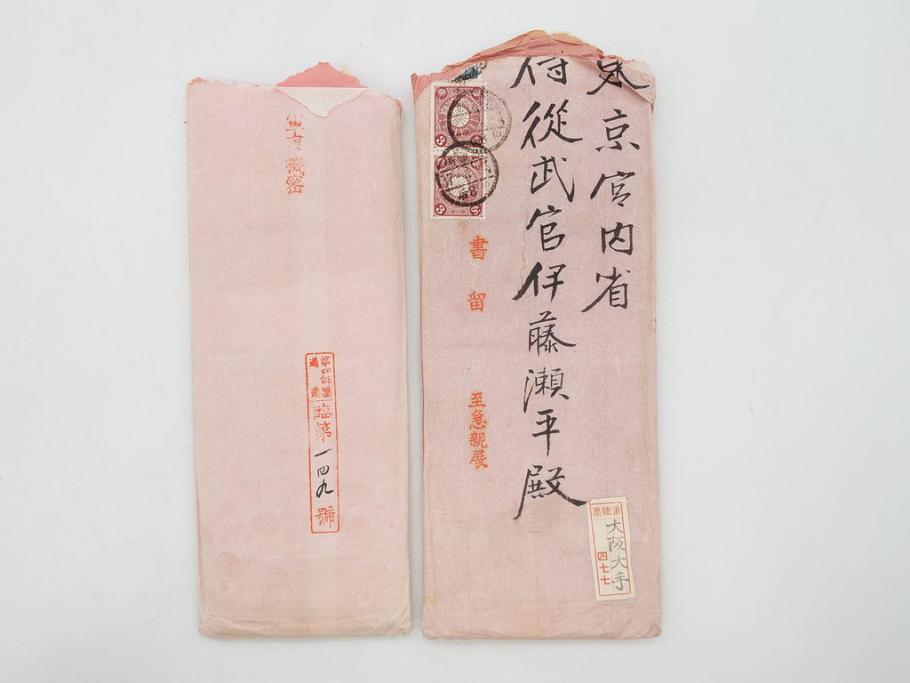 機密
臨第一四九號
東京宮内省
侍從武官伊藤瀬平殿
書留
至急親展
番號票
大阪大手
四七七